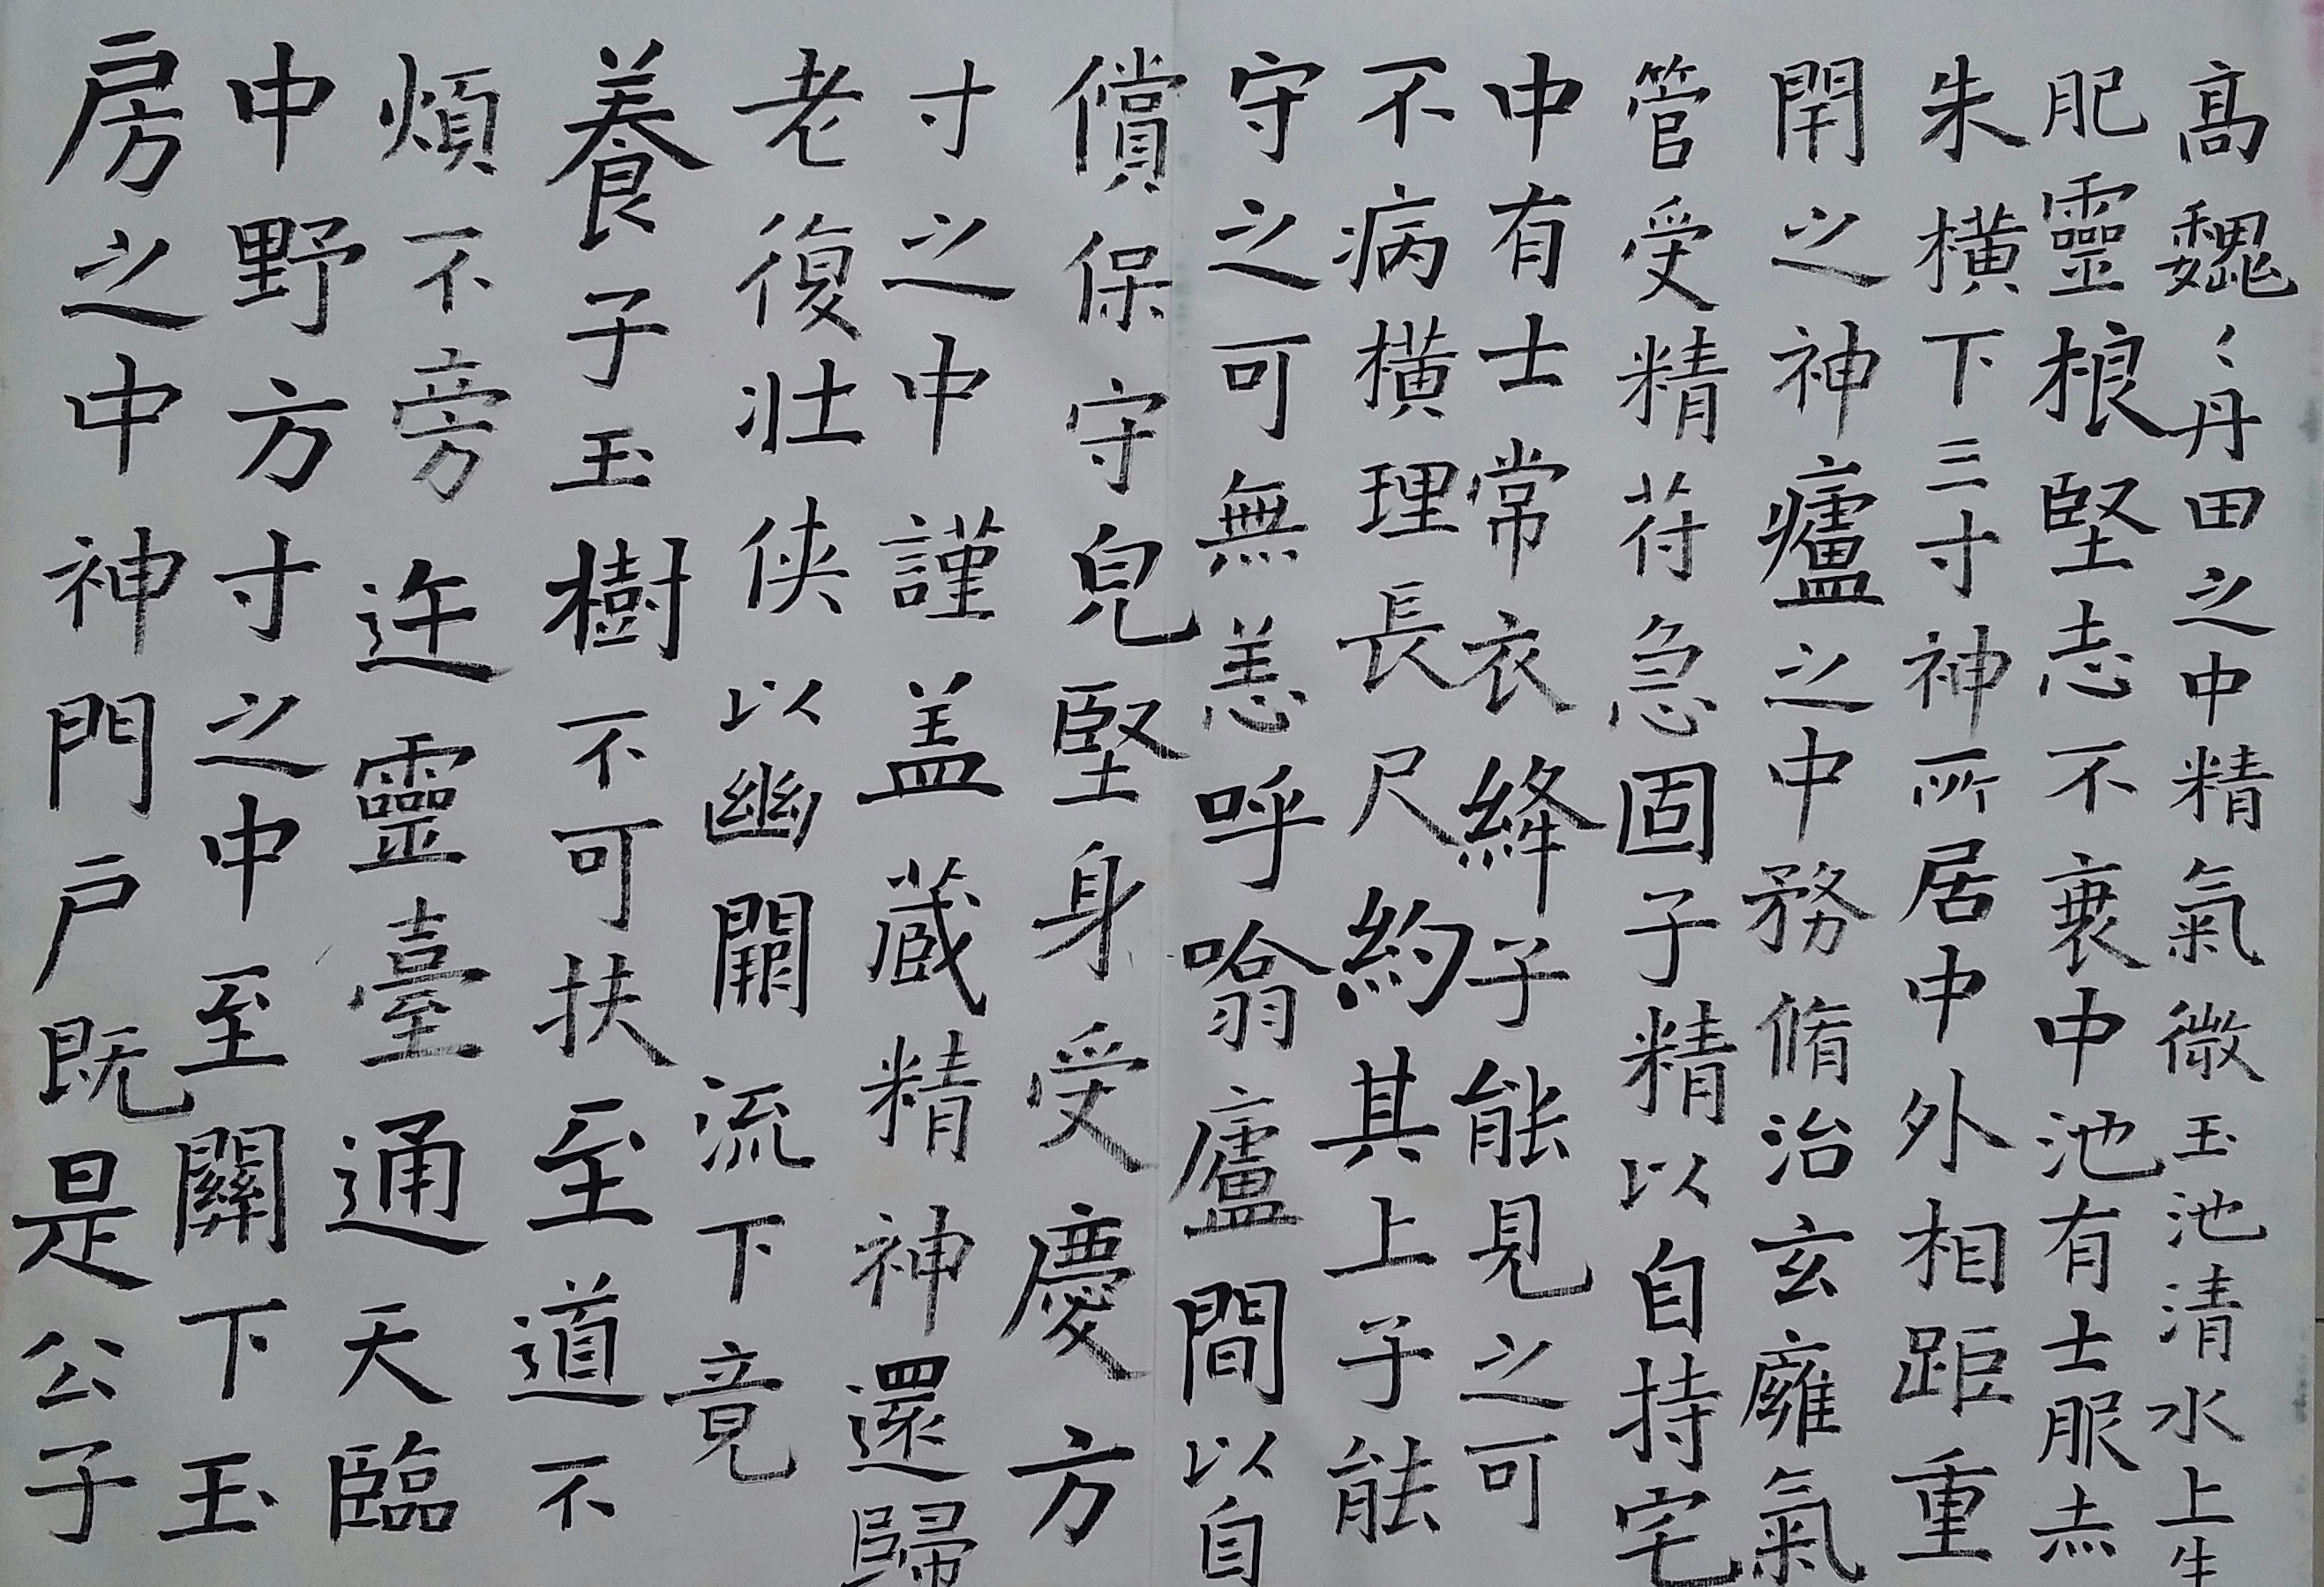 高巍〻丹田之中精氣微玉池清水上生
肥靈根堅志不衰中池有士服赤
朱橫下三寸神所居中外相距重
閇之神廬之中務脩治玄廱氣
管受精苻急固子精以自持宅
中有士常衣絳子能見之可
不病橫理長尺約其上子能
守之可無恙呼噏廬間以自
償保守皃堅身受慶方
寸之中謹盖藏精神還歸
老復壯俠以幽闕流下竟
養子玉樹不可扶至道不
煩不旁迕靈臺通天臨
中野方寸之中至關下玉
房之中神門戶既是公子